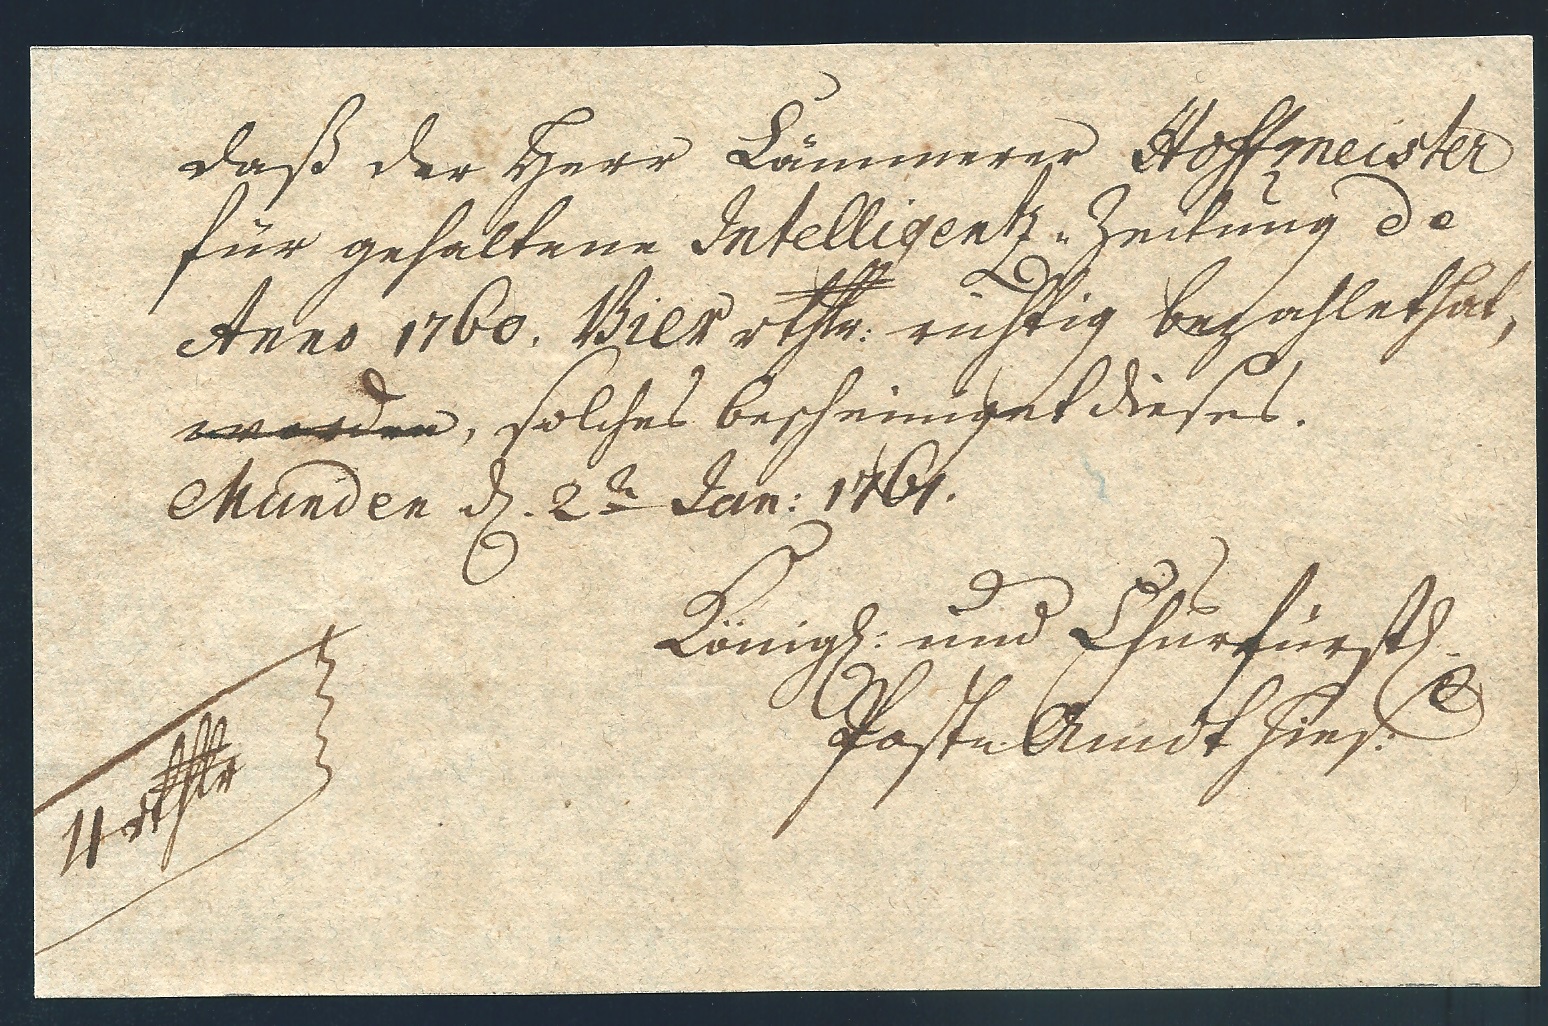 daß der Herr Cämmerer Hoffmeister
für gehaltene Intelligentz-Zeitung de
Anno 1760. Vier rthlr: richtig bezahlet hat,
worden, solches bescheiniget dieses.
Munden d. 2t Jan: 1761.
Königl: und Churfürstl.
Post-Amdt hies:
4 rthlr